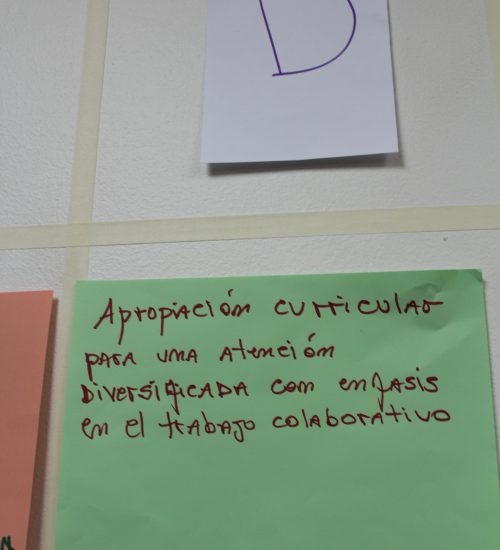 D
Apropiación curricular
para una atención
Diversificada con enfasis
en el trabajo colaborativo
N